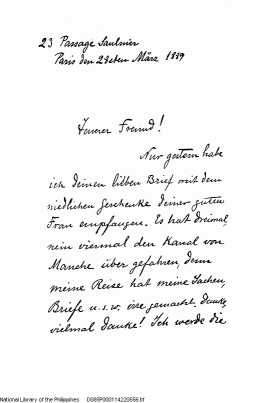 23 Passage Saulnier
Paris den 28sten März 1889
Teurer Freund!
Nur gestern habe
ich deinen lieben Brief mit dem
niedlichen Geschenke deiner guten
Frau empfangen. Es hat dreimal,
nein viermal den Kanal von
Manche über gefahren, denn
meine Reise hat meine Sachen,
Briefe u.s.w. irre gemacht. Danke,
vielmal danke! Ich werde die
National Library of the Philippines DG85P000114220558.tif